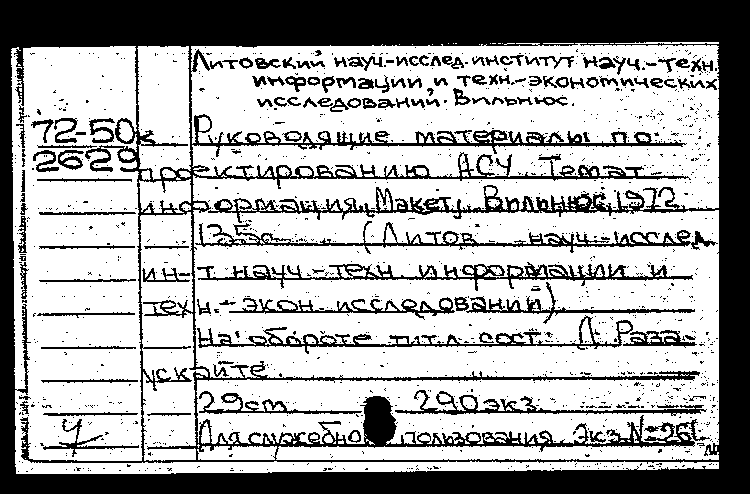 Литовский науч-исслед. институт науч.-техн.
информации и техн.-экономических
исследований. Вильнюс.
72-50к Руководящие материалы по
2629 проектированию АСУ. Темат.
информация. (Макет). Вильнюс, 1972.
135с. (Литов. науч.-исслед.
ин-т науч.-техн. информации и
техн.-экон. исследований)
На обороте тит. л. сост.: Л. Раза-
ускайте.
29см. 290экз.
Для служебно пользования. Экз. №